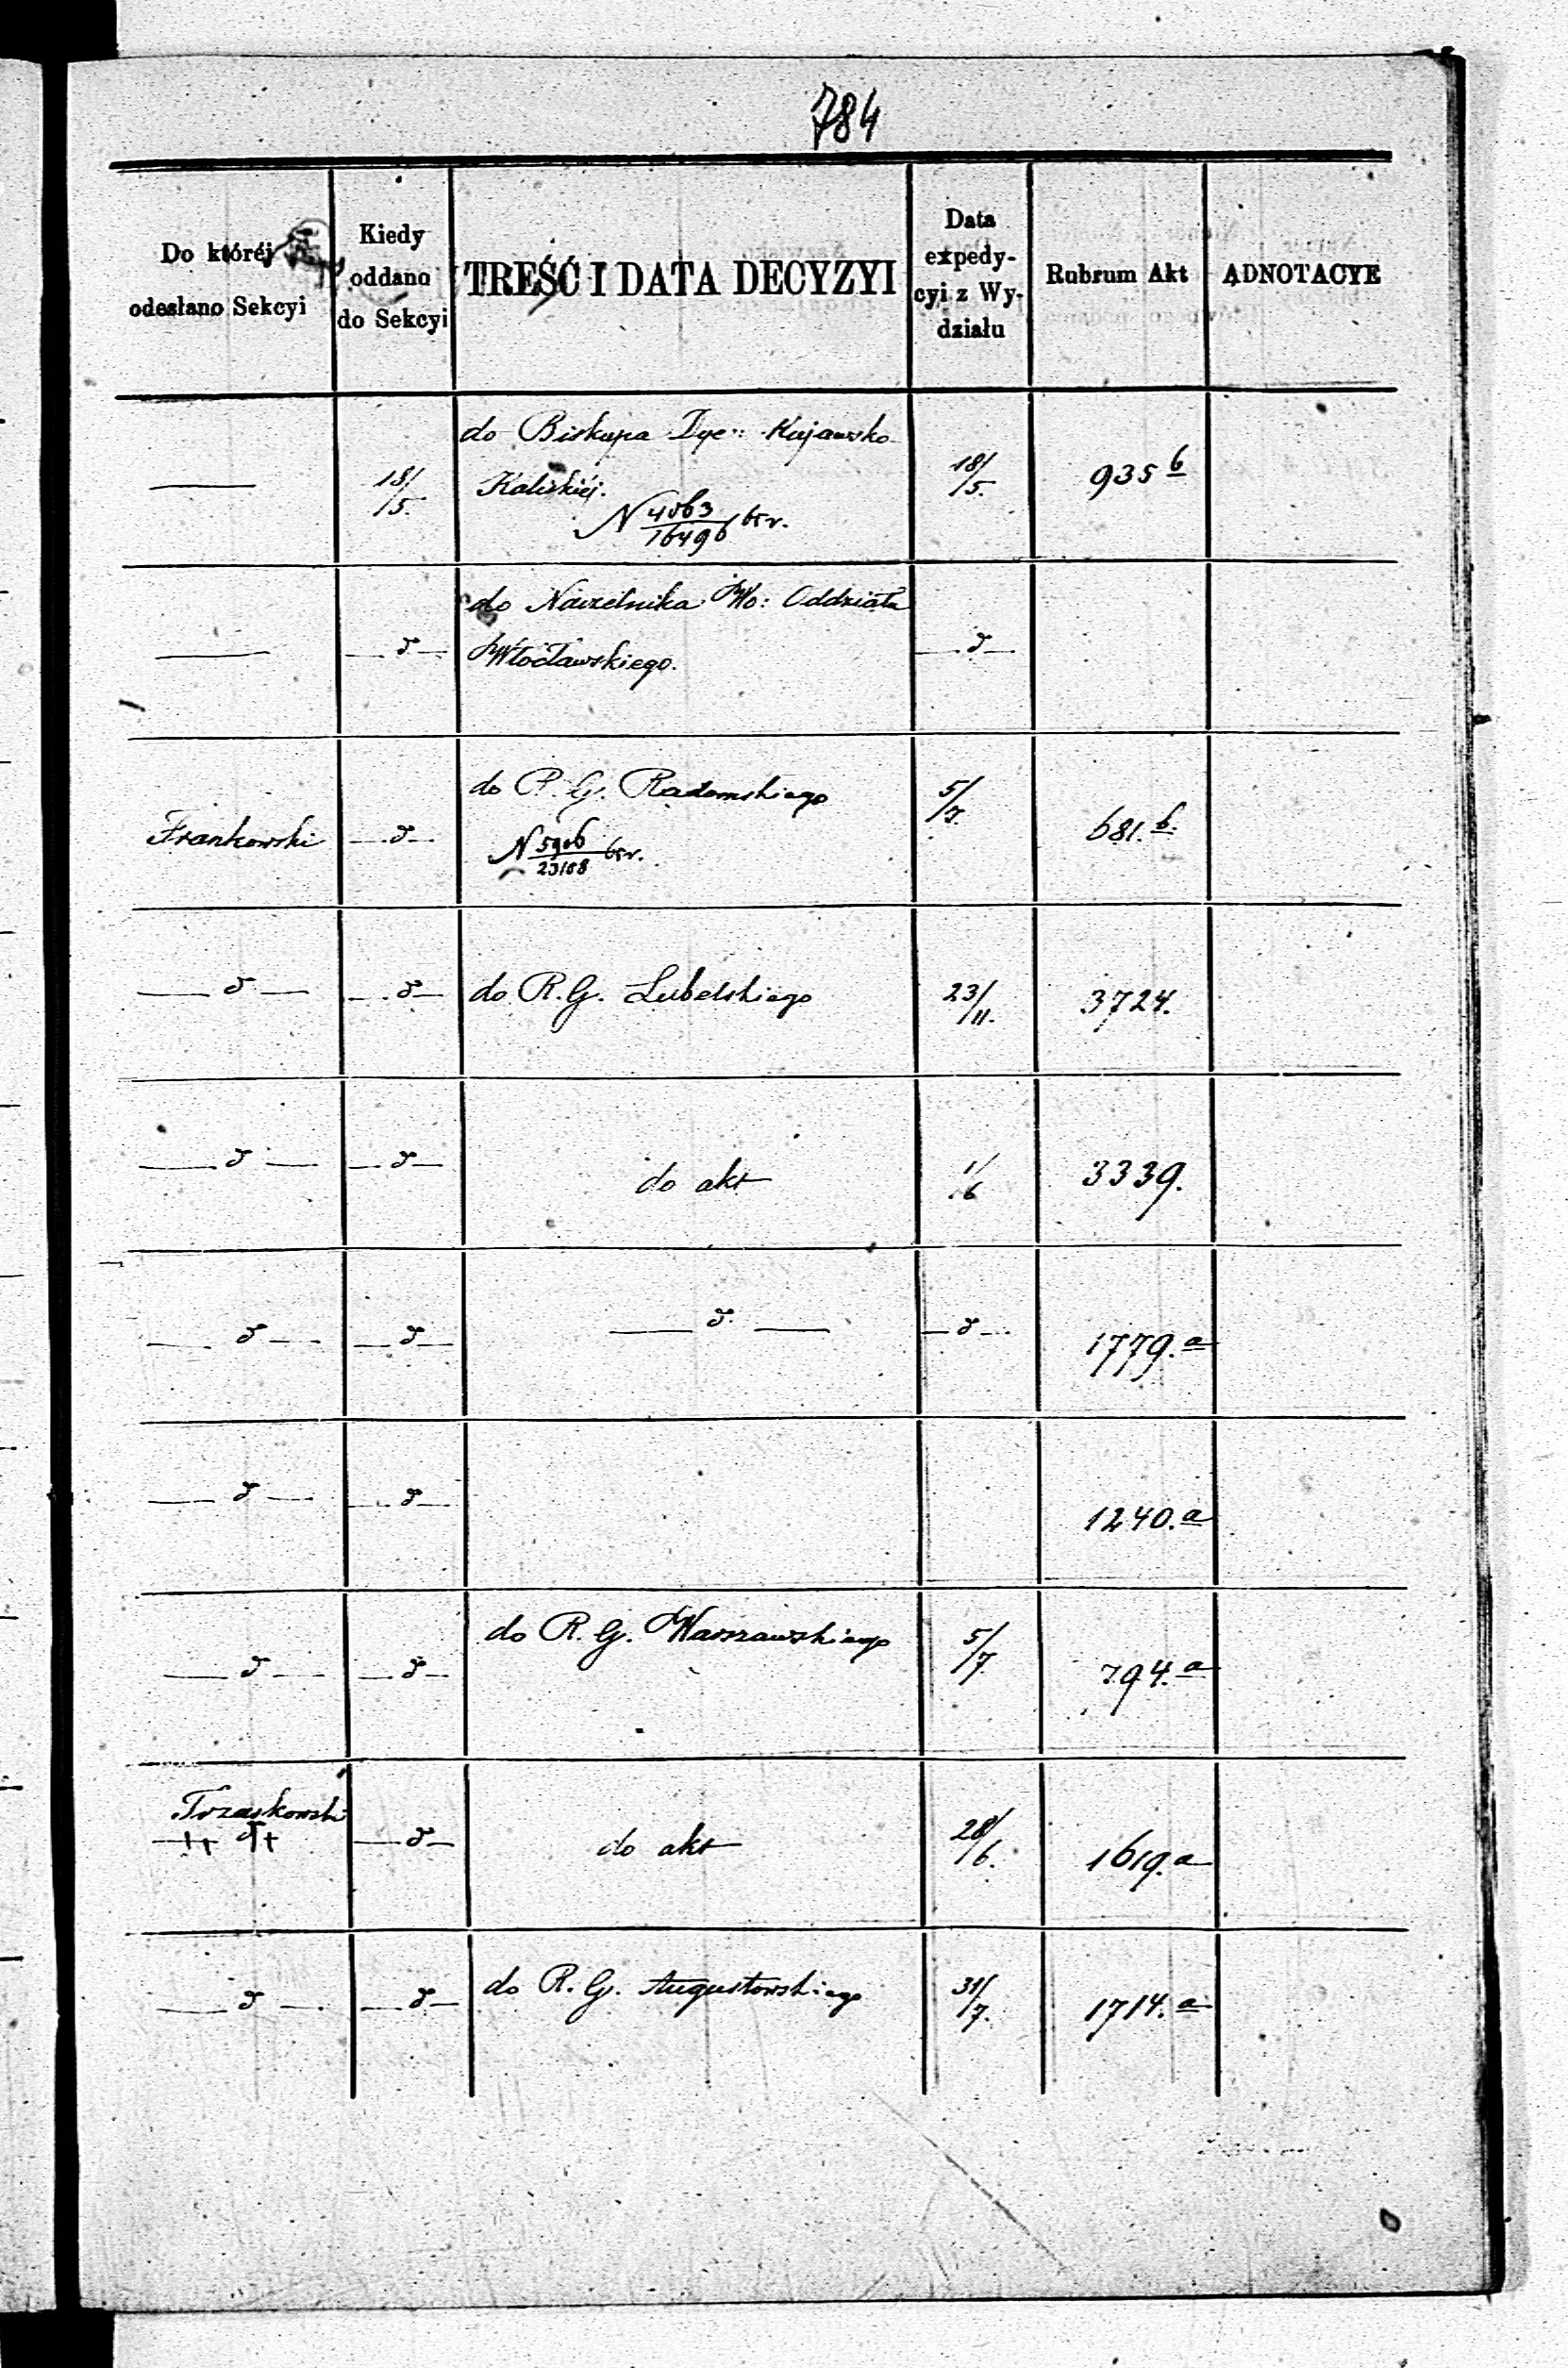 784
Do któréj odesłano Sekcyi
Kiedy oddano do Sekcyi
TREŚĆ I DATA DECYZYI
Data expedy-cyi z Wy-działu
Rubrum Akt
ADNOTACYE
do Biskupa Dye: Kujawsko
— 18/5. Kaliskiéj. 18/5. 935 b
N 4063/16496
do Naczelnika Wo: Oddziału
— —d— Włocławskiego. —d—
do R. G. Radomskiego 5/7.
Frankowski —d— 681. b.
N 5906/23108
—d— —d— do R. G. Lubelskiego 23/11. 3724.
—d— —d— do akt 1/6 3339.
—d— —d— —d.— —d— 1779. a
—d— —d— 1240. a
do R. G. Warszawskiego 5/7.
—d— —d— 794. a
Trzaskowski
—d— —d— do akt 28/6. 1619. a
—d— —d— do R. G. Augustowskiego 31/7. 1714. a